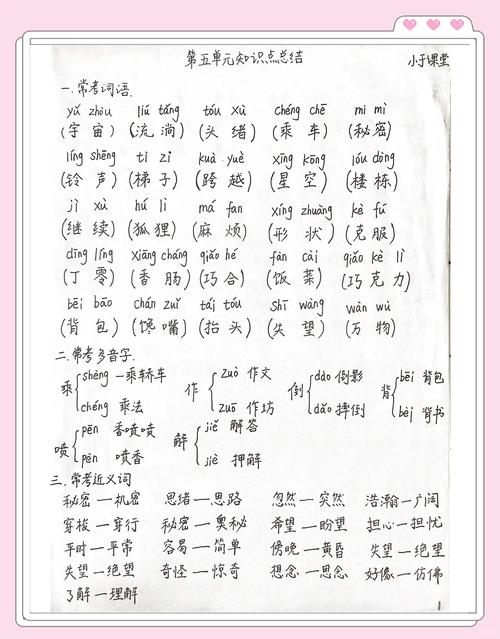 第五单元知识点总结
小于课堂
一.常考词语.
yǔ zhòu liú tǎng tóu xù chéng chē mì mì
(宇宙) (流淌) (头绪) (乘车) (秘密)
líng shēng tī zi kuà yuè xīng kōng lóu dòng
(铃声) (梯子) (跨越) (星空) (楼栋)
jì xù hú li má fan xíng zhuàng kè fú
(继续) (狐狸) (麻烦) (形状) (克服)
dīng líng xiāng cháng qiǎo hé fàn cài qiǎo kè lì
(丁零) (香肠) (巧合) (饭菜) (巧克力)
bēi bāo chán zuǐ tái tóu shī wàng wàn wù
(背包) (馋嘴) (抬头) (失望) (万物)
二.常考多音字.
乘 shèng 一乘轿车 chéng 乘法
作 zuò 作文 zuō 作坊
倒 dào 倒影 dǎo 摔倒
背 bēi 背包 bèi 背书
喷 pēn 香喷喷 pèn 喷香
解 jiě 解答 jiè 押解
三.常考近义词
秘密—机密 思绪—思路 忽然—突然 浩瀚—广阔
穿梭—穿行 秘密—奥秘 希望—盼望 担心—担忧
平时—平常 容易—简单 傍晚—黄昏 失望—绝望
失望—绝望 奇怪—惊奇 想念—思念 好像—仿佛
了解—理解
1